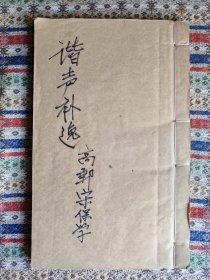 谐声补逸
高邮宋保学